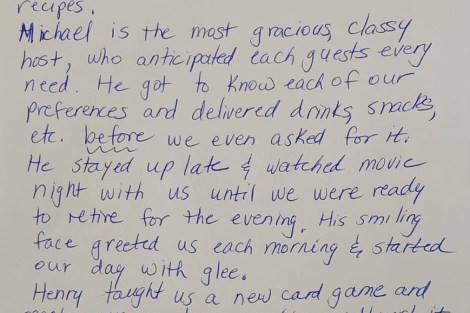 recipes.
Michael is the most gracious, classy
host, who anticipated each guests every
need. He got to know each of our
preferences and delivered drinks, snacks,
etc. before we even asked for it.
He stayed up late & watched movie
night with us until we were ready
to retire for the evening. His smiling
face greeted us each morning & started
our day with glee.
Henry taught us a new card game and